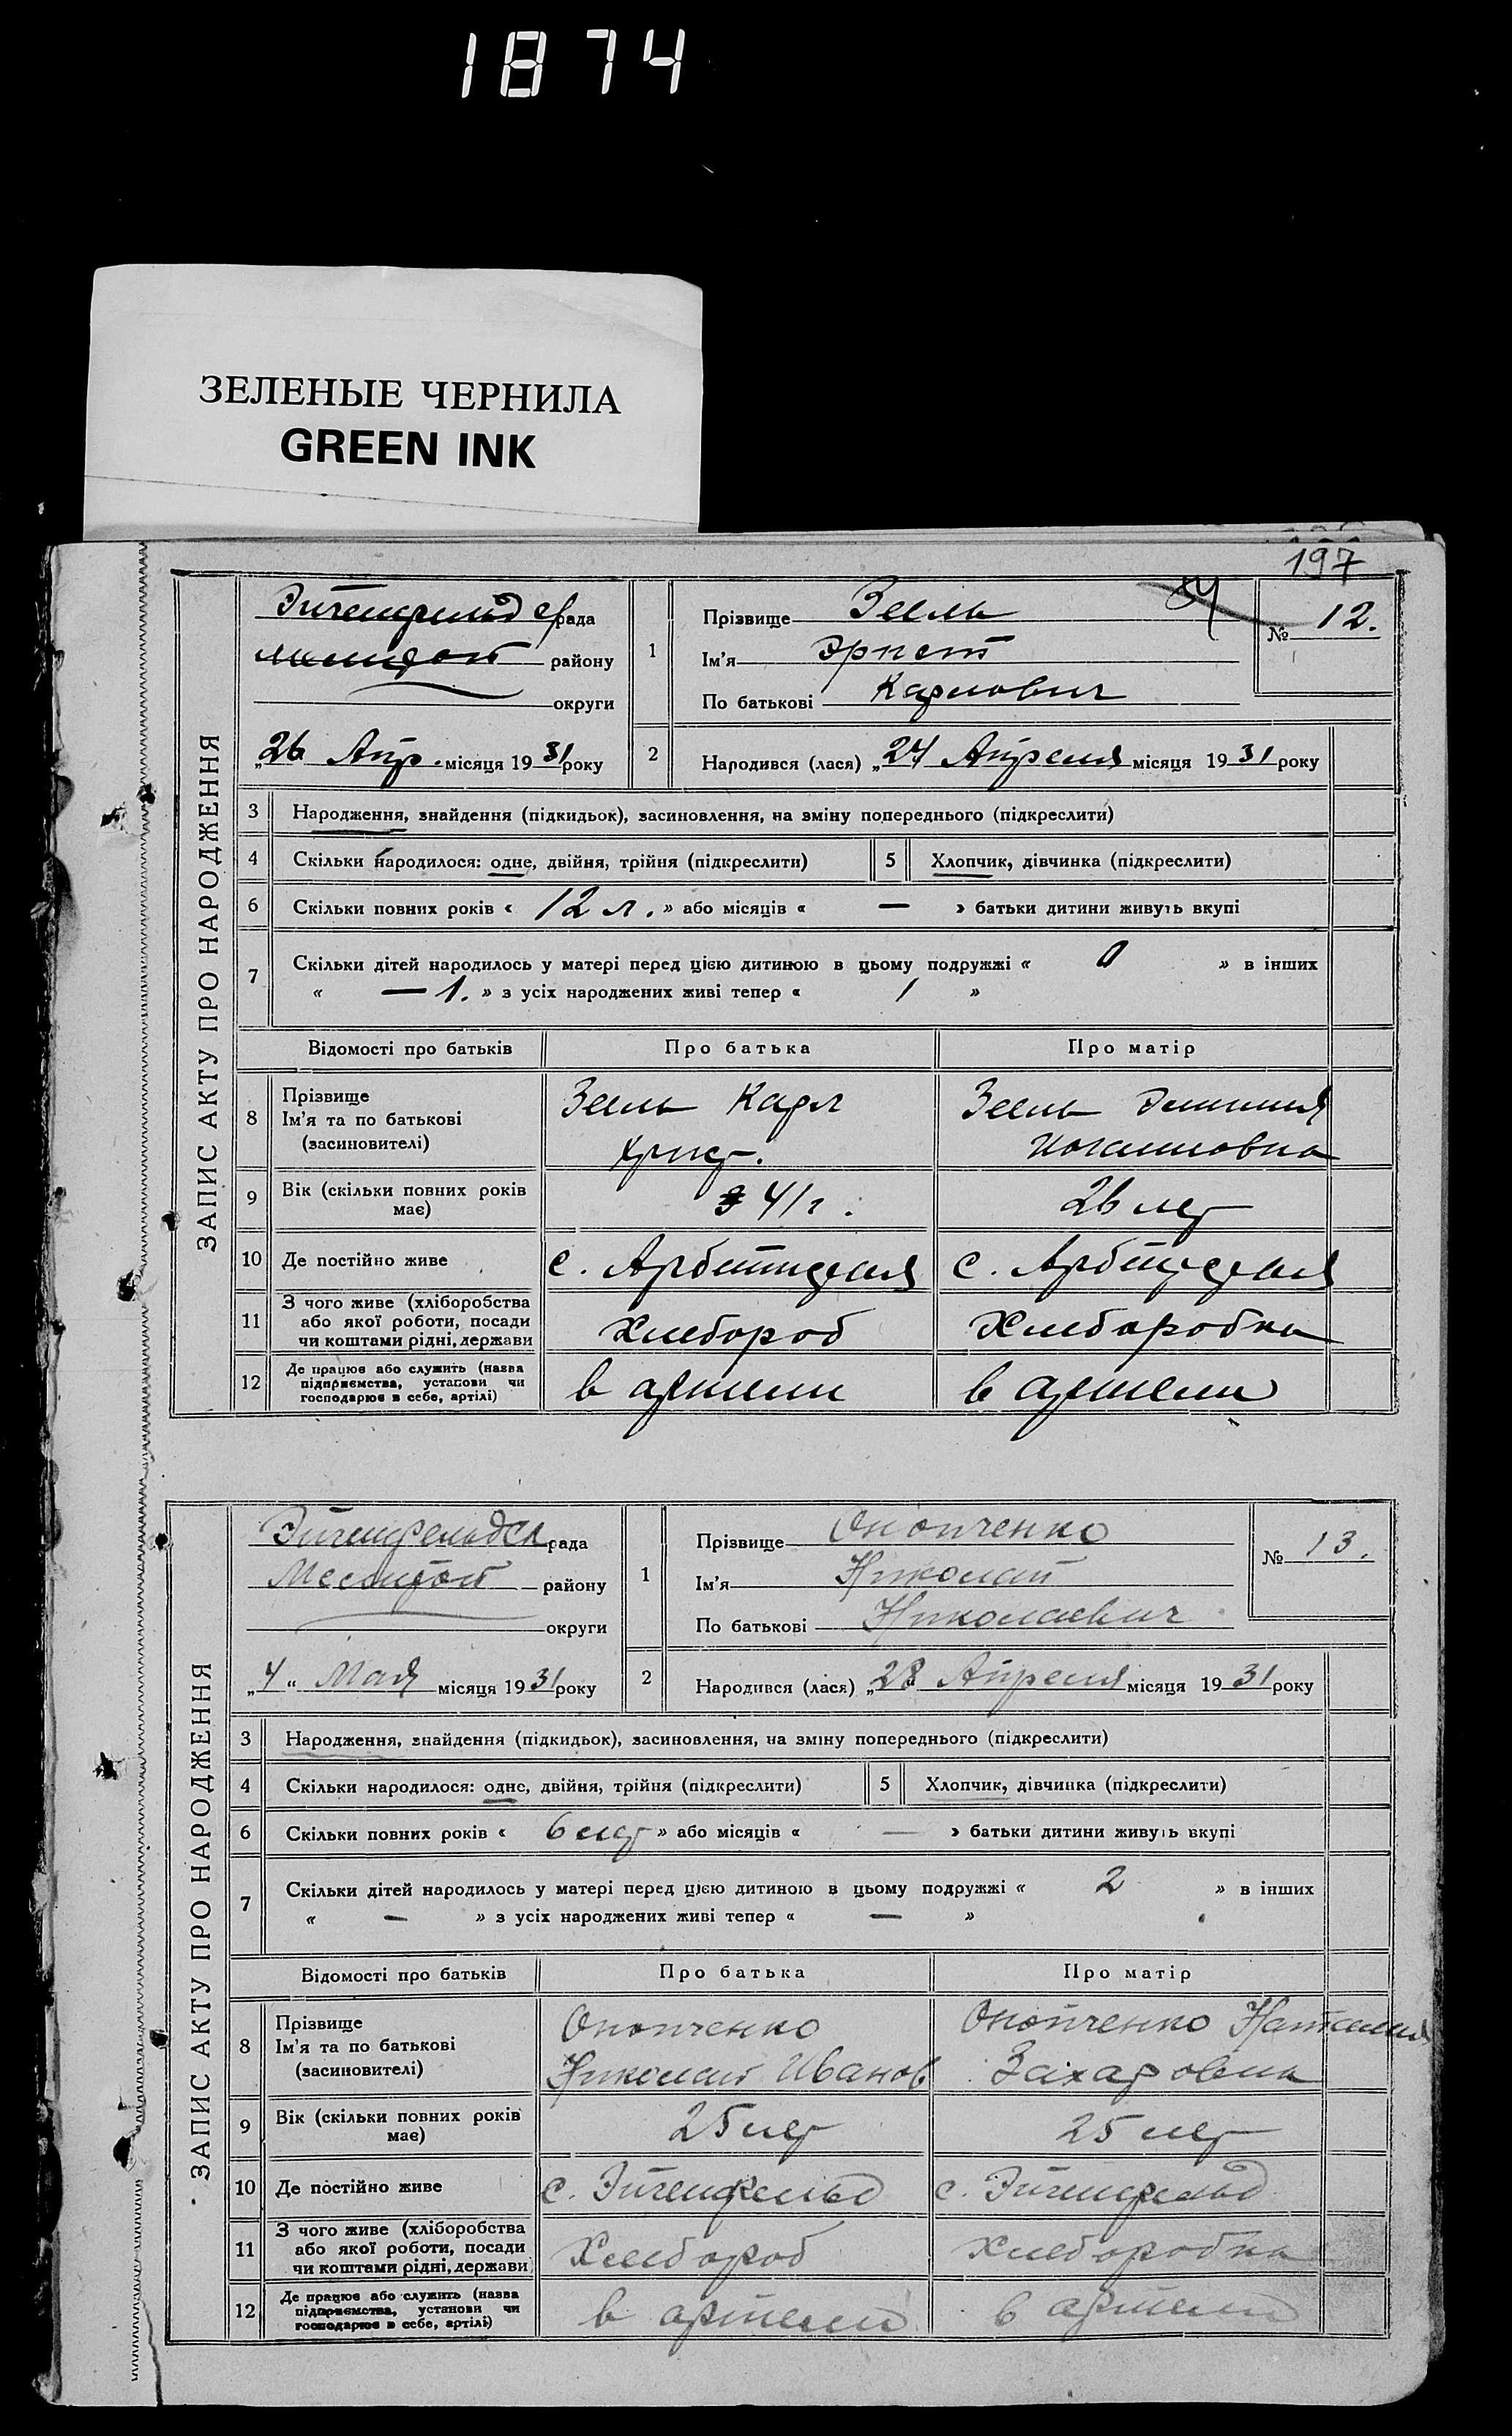 1874
ЗЕЛЕНЫЕ ЧЕРНИЛА
GREEN INK
197
ЗАПИС АКТУ ПРО НАРОДЖЕННЯ
рада
району
округи
„26 Апр. місяця 1931 року
1
Прізвище Зеель
Ім'я Эрнст
По батькові Карлович
№ 12.
2
Народився (лася) „24 Апреля місяця 1931 року
3 Народження, знайдення (підкидьок), засиновлення, на зміну попереднього (підкреслити)
4 Скільки народилося: одне, двійня, трійня (підкреслити) 5 Хлопчик, дівчинка (підкреслити)
6 Скільки повних років « 12 л. » або місяців « — » батьки дитини живуть вкупі
7 Скільки дітей народилось у матері перед цією дитиною в цьому подружжі « 0 » в інших
« — 1. » з усіх народжених живі тепер « 1 »
Відомості про батьків Про батька Про матір
8 Прізвище
Ім'я та по батькові
(засиновителі)
Зеель Карл
Христ.
Зеель Эмилия
9 Вік (скільки повних років
має)
41 г.
26 лет
10 Де постійно живе с.
с.
11 З чого живе (хліборобства
або якої роботи, посади
чи коштами рідні, держави
Хлебороб Хлеборобка
12 Де працює або служить (назва
підприємства, установи чи
господарює в себе, артілі)
в артели в артели
ЗАПИС АКТУ ПРО НАРОДЖЕННЯ
рада
району
округи
„4“ Мая місяця 1931 року
1
Прізвище Онопченко
Ім'я Николай
По батькові Николаевич
№ 13.
2
Народився (лася) „28 Апреля місяця 1931 року
3 Народження, знайдення (підкидьок), засиновлення, на зміну попереднього (підкреслити)
4 Скільки народилося: одне, двійня, трійня (підкреслити) 5 Хлопчик, дівчинка (підкреслити)
6 Скільки повних років « 6 лет » або місяців « — » батьки дитини живуть вкупі
7 Скільки дітей народилось у матері перед цією дитиною в цьому подружжі « 2 » в інших
« — » з усіх народжених живі тепер « — »
Відомості про батьків Про батька Про матір
8 Прізвище
Ім'я та по батькові
(засиновителі)
Онопченко
Николай Иванов
Онопченко Наталия
Захаровна
9 Вік (скільки повних років
має)
25 лет 25 лет
10 Де постійно живе с. Эйгенфельд с. Эйгенфельд
11 З чого живе (хліборобства
або якої роботи, посади
чи коштами рідні, держави
Хлебороб Хлеборобка
12 Де працює або служить (назва
підприємства, установи чи
господарює в себе, артілі)
в артели в артели